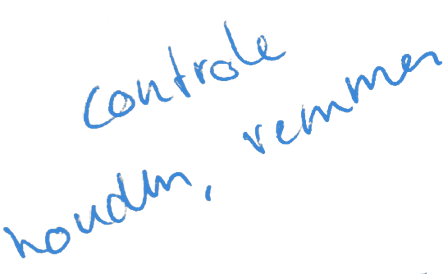 controle
houden, remmen